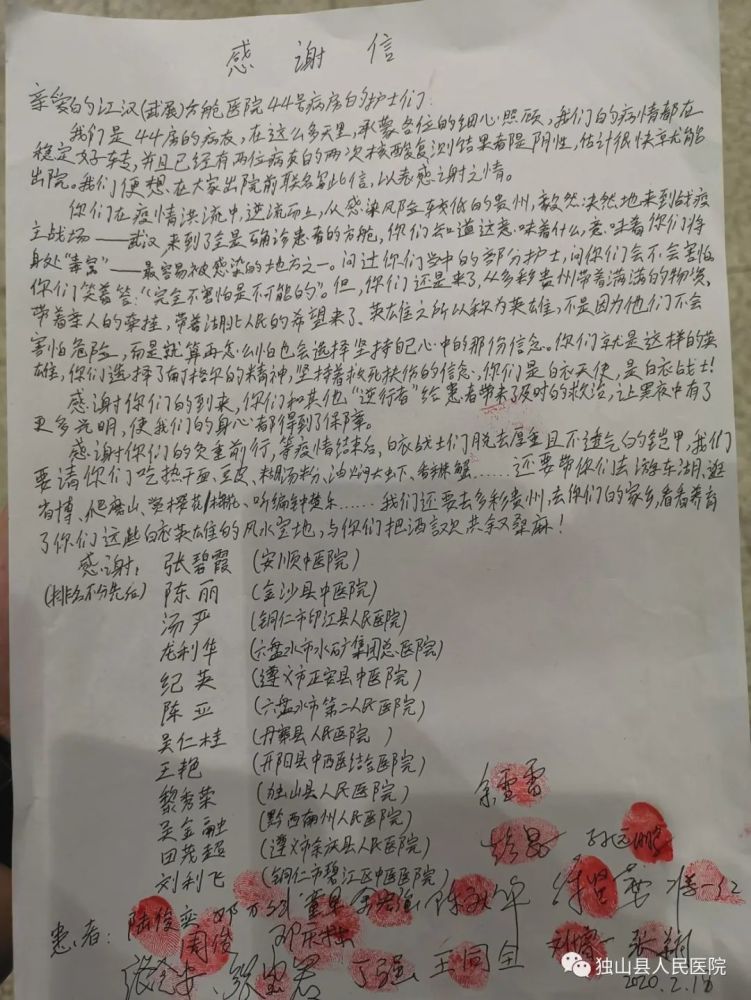 感谢信
亲爱的江汉(武展)方舱医院44号病房的护士们:
我们是44房的病友,在这么多天里,承蒙各位的细心照顾,我们的病情都在
稳定好转,并且已经有两位病友的两次核酸复测结果者是阴性,估计很快就能
出院。我们便想在大家出院前联名写此信,以表感谢之情。
你们在疫情洪流中,逆流而上,从感染风险较低的贵州,毅然决然地来到战疫
主战场——武汉,来到了全是确诊患者的方舱,你们知道这意味着什么,意味着你们将
身处“毒窝”——最容易被感染的地方之一。问过你们当中的部分护士,问你们会不会害怕,
你们笑着答:“完全不害怕是不可能的”。但,你们还是来了,从多彩贵州带着满满的物资,
带着亲人的牵挂,带着湖北人民的希望来了。英雄之所以称为英雄,不是因为他们不会
害怕危险,而是就算再怎么怕也会选择坚持自己心中的那份信念。你们就是这样的英
雄,你们选择了南丁格尔的精神,坚持着救死扶伤的信念,你们是白衣天使,是白衣战士!
感谢你们的到来,你们和其他“逆行者”给患者带来了及时的救治,让黑夜中有了
更多光明,使我们的身心都得到了保障。
感谢你们的负重前行,等疫情结束后,白衣战士们脱去厚重且不透气的铠甲,我们
要请你们吃热干面、豆皮、糊汤粉、油焖大虾、香辣蟹……还要带你们去游东湖、逛
省博、爬磨山、赏樱花/梅桃、听编钟楚乐……我们还要去多彩贵州,去你们的家乡,看看养育
了你们这些白衣英雄的风水宝地,与你们把酒言欢共叙桑麻!
感谢: 张碧霞 (安顺中医院)
(排名不分先后) 陈丽 (金沙县中医院)
汤严 (铜仁市印江县人民医院)
龙利华 (六盘水市水矿集团总医院)
纪英 (遵义市正安县中医院)
陈亚 (六盘水市第二人民医院)
吴仁桂 (丹寨县人民医院)
王艳 (开阳县中西医结合医院)
黎秀荣 (独山县人民医院)
吴金融 (黔西南州人民医院)
田茂超 (遵义市余庆县人民医院)
刘利飞 (铜仁市碧江区中医医院)
余雪雷
孙远鹏
患者: 陆俊奕
周俊
丁强 王同全 张翔
2020.2.18
独山县人民医院